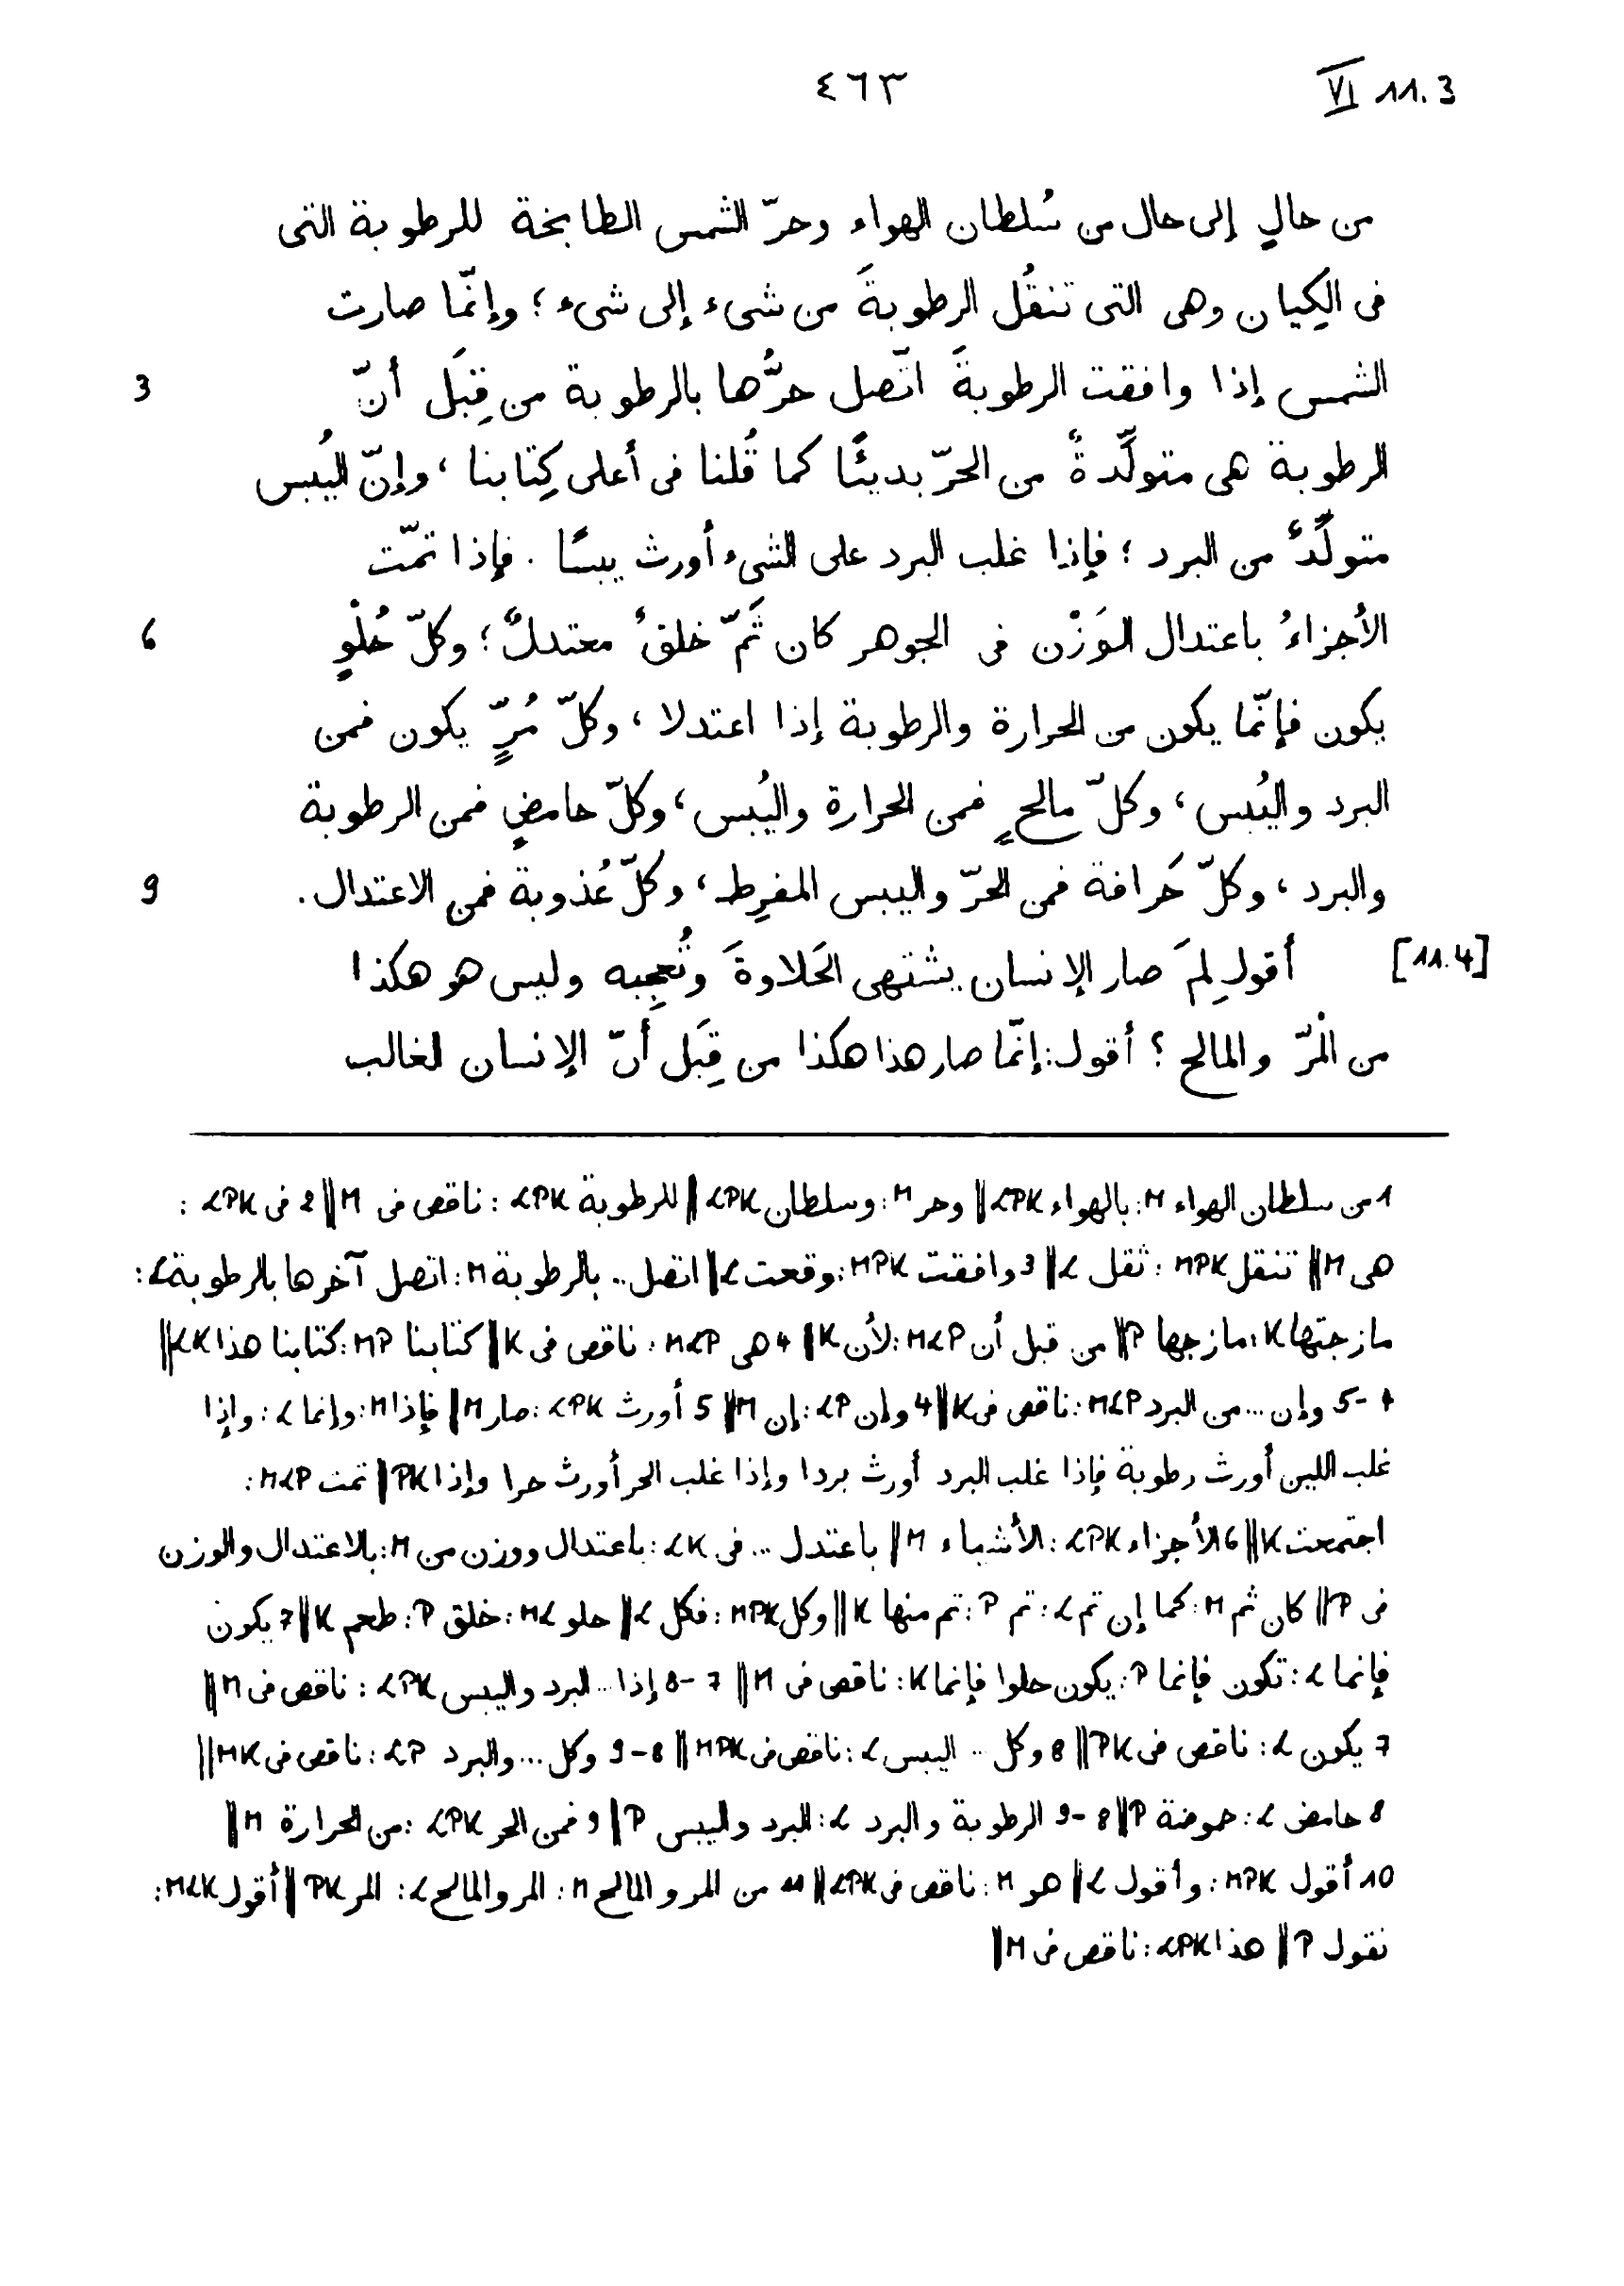 ٤٦٣
VI 11.3
من حالٍ إلى حال من سُلطان الهواء وحرّ الشمس الطابخة للرطوبة التى
فى الكِيان وهى التى تنقُل الرطوبةَ من شىء إلى شىء ؛ وإنّما صارت
3 الشمس إذا وافقت الرطوبةَ اتّصل حرُّها بالرطوبة من قِبَل أنّ
الرطوبة هى متولِّدةٌ من الحرّ بديئًا كما قُلنا فى أعلى كِتابنا ، وإنّ اليُبس
متولِّدٌ من البرد ؛ فإذا غلب البرد على الشىء أورث يبسًا . فإذا تمّت
6 الأجزاءُ باعتدال الوَزْن فى الجوهر كان ثَمّ خلقٌ معتدلٌ ؛ وكلّ حُلْوٍ
يكون فإنّما يكون من الحرارة والرطوبة إذا اعتدلا ، وكلّ مُرٍّ يكون فمن
البرد واليُبس ، وكلّ مالحٍ فمن الحرارة واليُبس ، وكلّ حامضٍ فمن الرطوبة
9 والبرد ، وكلّ حَرافة فمن الحرّ واليبس المفرِط ، وكلّ عُذوبة فمن الاعتدال .
[11.4] أقول لِمَ صار الإنسان يشتهى الحَلاوةَ وتُعجِبه وليس هو هكذا
من المُرّ والمالح ؟ أقول: إنّما صار هذا هكذا من قِبَل أنّ الإنسان لغالب
1 من سلطان الهواء M: بالهواء LPK || وحر M: وسلطان LPK || للرطوبة LPK : ناقص فى M || 2 فى LPK :
هى M || تنقل MPK : ثقل L || 3 وافقت MPK: وقعت L || اتصل .. بالرطوبة M: اتصل آخرها بالرطوبة L:
مازجتها K: مازجها P || من قبل أن MLP: لأن K || 4 هى MLP: ناقص فى K || كتابنا MP: كتابنا هذا LK ||
4-5 وإن ... من البرد MLP: ناقص فى K || 4 وإن LP: إن M || 5 أورث LPK: صار M || فإذا M: وإنما L: وإذا
غلب اللين أورث رطوبة فإذا غلب البرد أورث بردا وإذا غلب الحر أورث حرا وإذا PK || تمت MLP:
اجتمعت K || 6 الأجزاء LPK: الأشياء M || باعتدل ... فى LK: باعتدال ووزن من M: بالاعتدال والوزن
فى P || كان ثم M: كما إن تم L: تم P: تم منها K || وكل MPK: فكل L || حلو ML: خلق P: طعم K || 7 يكون
فإنما L: تكون فإنما P: يكون حلوا فإنما K: ناقص فى M || 7-8 إذا .. البرد واليبس LPK: ناقص فى M ||
7 يكون L: ناقص فى PK || 8 وكل .. اليبس L: ناقص فى MPK || 8-9 وكل ... والبرد LP: ناقص فى MK ||
8 حامض L: حموضة P || 8-9 الرطوبة والبرد L: البرد واليبس P || 9 فمن الحر LPK: من الحرارة M ||
10 أقول MPK: وأقول L || هو M: ناقص فى LPK || 11 من المر والمالح M: المر والمالح L: المر PK || أقول MLK:
نقول P || هذا LPK: ناقص فى M ||